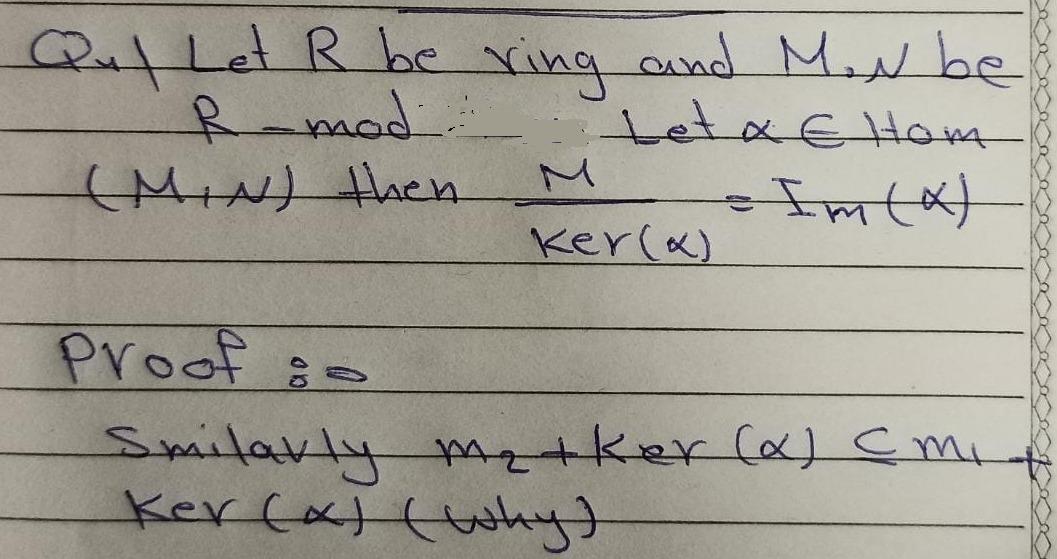 Qu\ Let R be ring and M, N be
R-mod Let α ∈ Hom
(M, N) then M/Ker(α) = Im(α)
Proof :-
Smilarly m₂ + Ker (α) ⊆ m₁ +
Ker (α) (why)